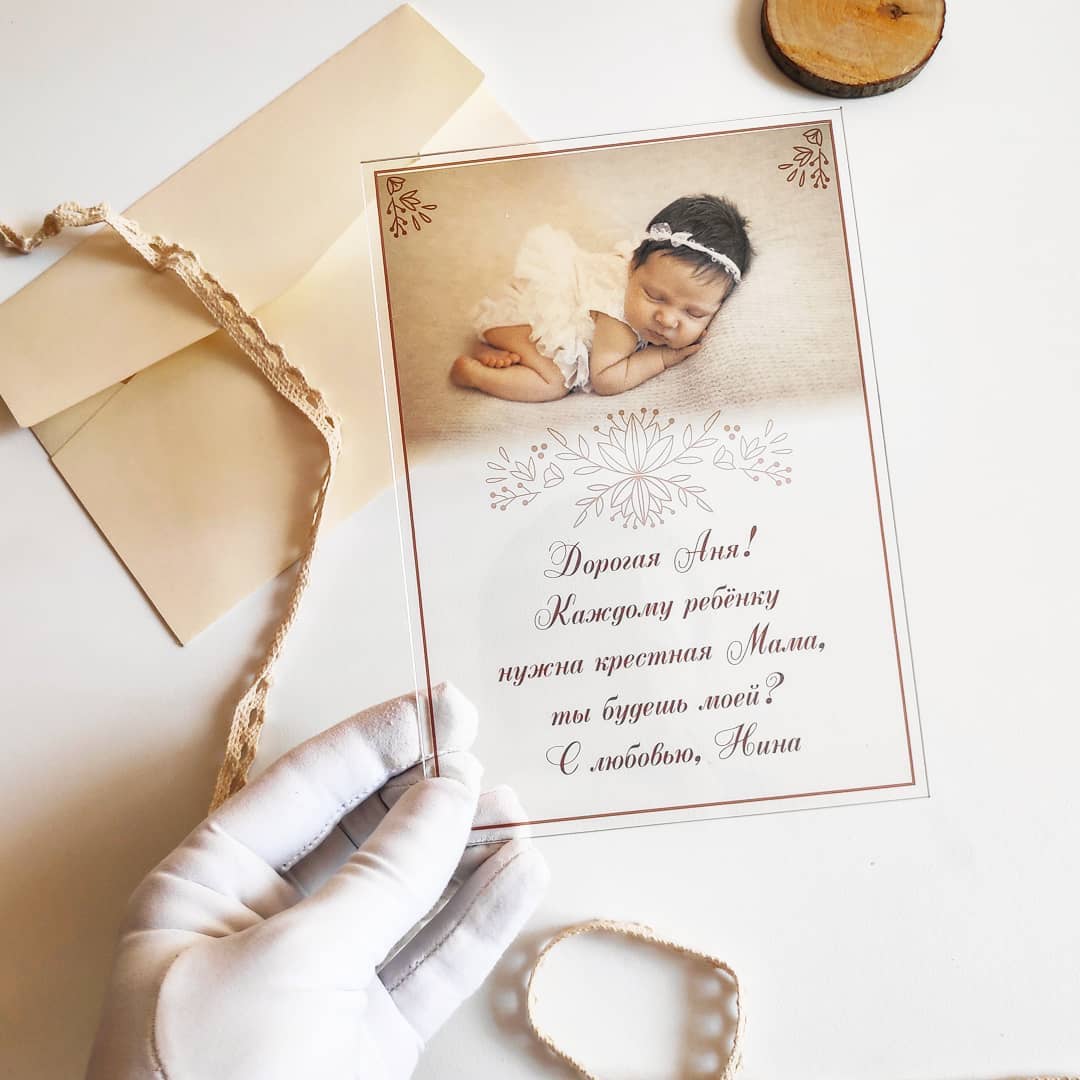 Дорогая Аня!
Каждому ребёнку
нужна крестная Мама,
ты будешь моей?
С любовью, Нина